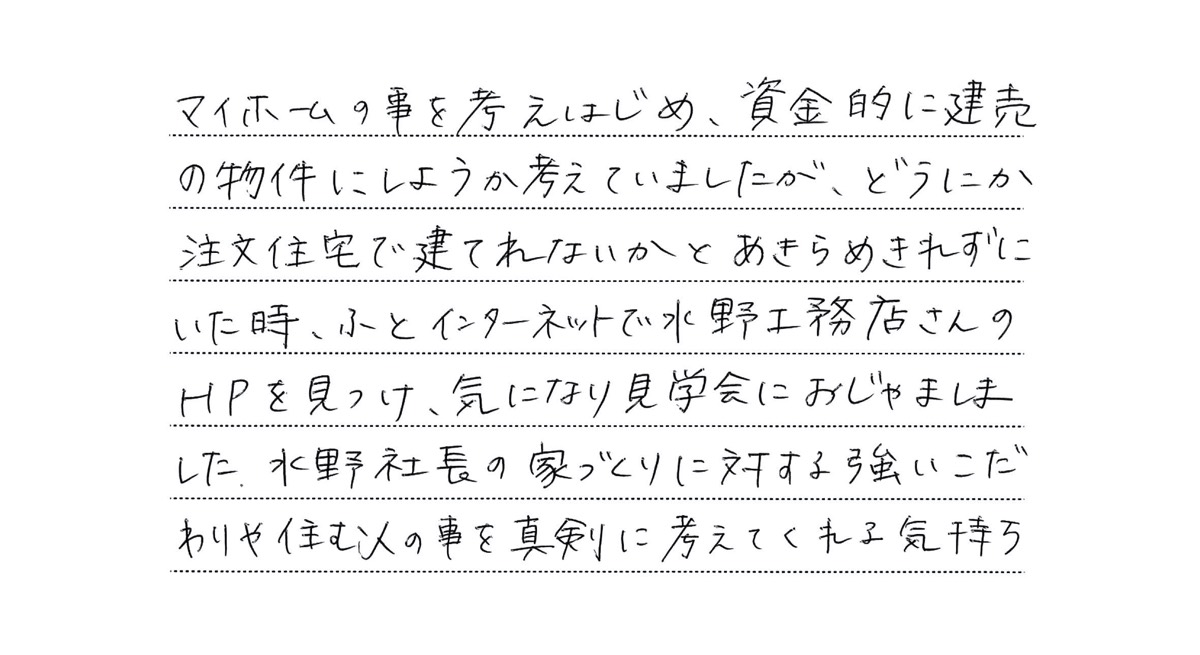 マイホームの事を考えはじめ、資金的に建売
の物件にしようか考えていましたが、どうにか
注文住宅で建てれないかとあきらめきれずに
いた時、ふとインターネットで水野工務店さんの
HPを見つけ、気になり見学会におじゃましま
した。水野社長の家づくりに対する強いこだ
わりや住む人の事を真剣に考えてくれる気持ち